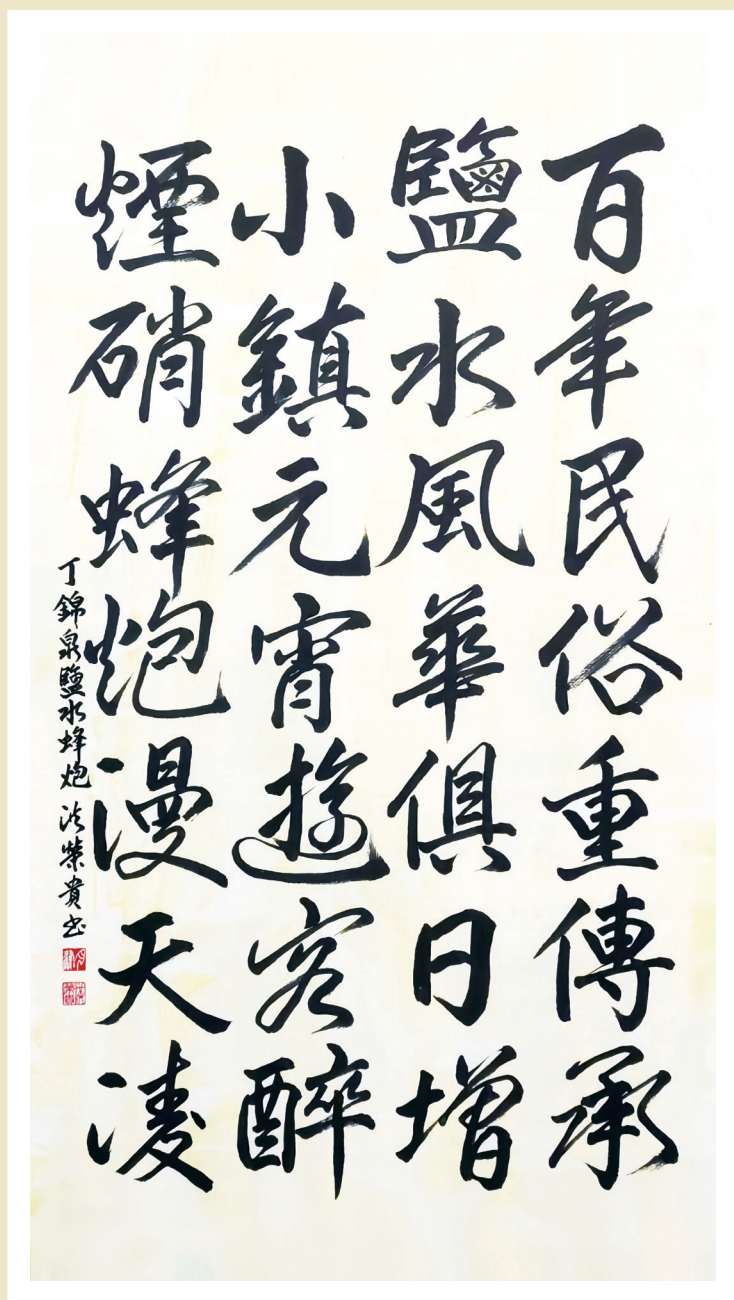 百年民俗重傳承
鹽水風華俱日增
小鎮元宵遊客醉
煙硝蜂炮漫天凌
丁錦泉鹽水蜂炮 洪榮貴書